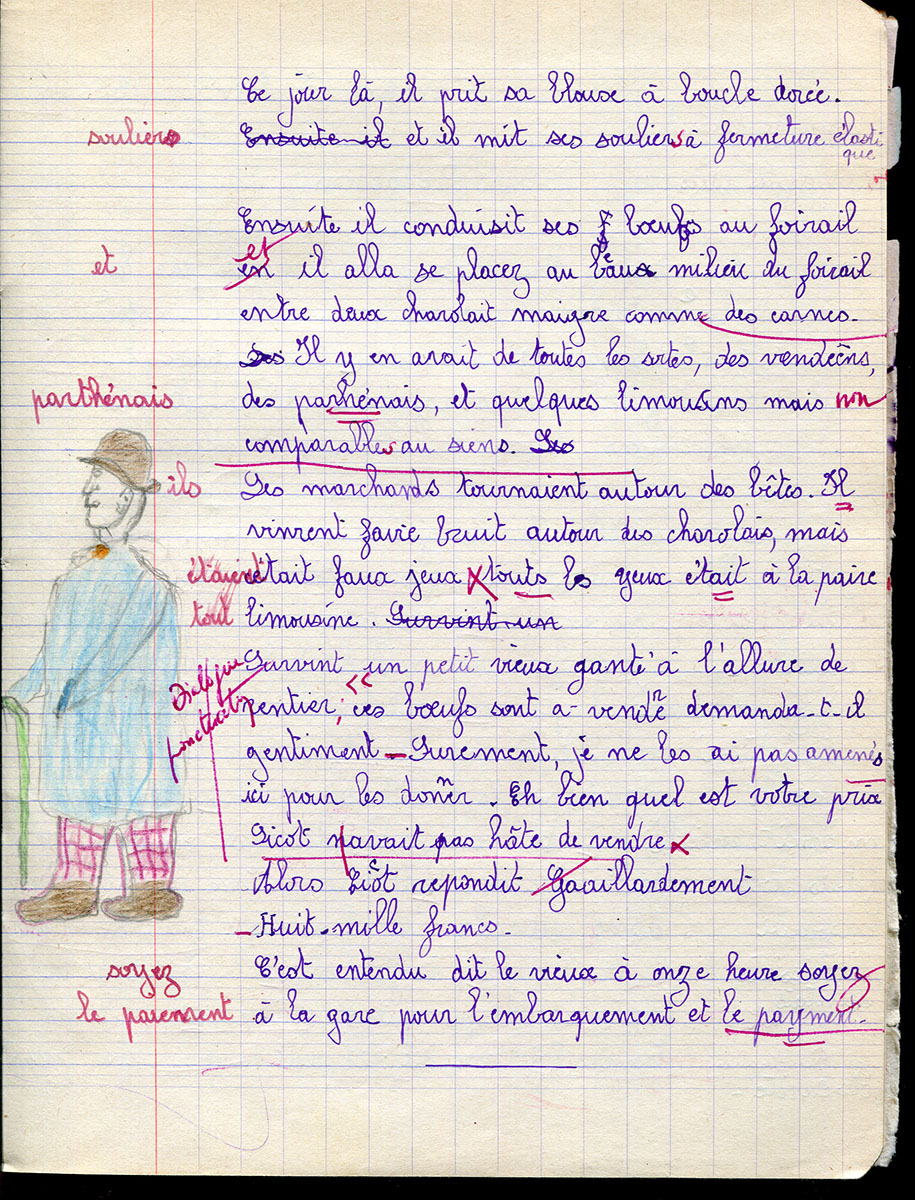 Ce jour là, il prit sa blouse à boucle dorée.
souliers Ensuite il et il mit ses souliers à fermeture élasti
que
Ensuite il conduisit ses f bœufs au foirail
et
et en il alla se placez au beau milieu du foirail
entre deux charolait maigre comme des carnes.
Des Il y en avait de toutes les srtes, des vendéens,
parthénais des parhénais, et quelques limousins mais non
comparables au siens. Des
ils Des marchands tournaient autour des bêtes. Il
vinrent faire bruit autour des charolais, mais
étaient était faux jeux touts les yeux était à la paire
tout limousine. Survint un
Survint un petit vieux ganté à l'allure de
Dialogue
ponctuation
rentier, « ces bœufs sont a-vendre demanda-t-il
gentiment – Surement, je ne les ai pas amenés
ici pour les donner. Eh bien quel est votre prix
Sicot navait pas hâte de vendre
Alors Sicot repondit Gaaillardement
– Huit-mille francs.
soyez C'est entendu dit le vieux à onze heure soyez
le paiement à la gare pour l'embarquement et le payment.